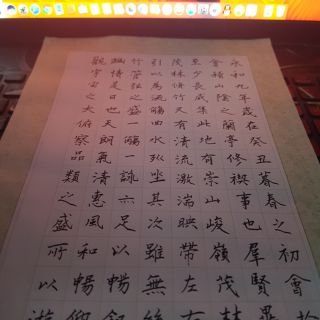 永和九年歲在癸丑暮春之初會於
會稽山陰之蘭亭修禊事也羣賢畢
至少長咸集此地有崇山峻嶺茂林
茂林脩竹又有清流激湍映帶左右
引以為流觴曲水列坐其次雖無絲
竹管弦之盛一觴一詠亦足以暢敘
幽情是日也天朗氣清惠風和暢仰
觀宇宙之大俯察品類之盛所以遊